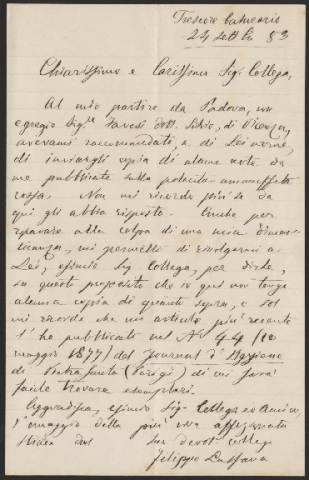 Trescore Balneario
24 Sett. 83
Chiarissimo e Carissimo Sig. Collega,
Al mio partire da Padova, un
egregio Sig.re Favesi dott. Silvio, di Vicenza,
avevami raccomandato, a di Lei nome,
di inviargli copia di alcune note da
me pubblicate sulla
rossa. Non mi ricordo più se da
qui gli abbia risposto. Anche per
riparare alla colpa di una mia dimen-
ticanza, mi permetto di rivolgermi a
Lei, esimio Sig. Collega, per dirle,
su questo proposito che io qui non tengo
alcuna copia di quanto sopra, e sol
mi ricordo che un articolo più recente
l'ho pubblicato nel N.° 44 (10
maggio 1877) del Journal d'Hygiène
di Pietra Santa (Parigi) di cui sarà
facile trovare esemplari.
Aggradisca, esimio Sig. Collega ed Amico,
l'omaggio della più viva affezionata
stima dal suo devot. collega
Filippo Lussana